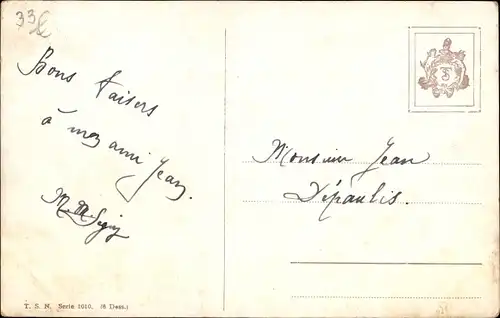 33
Bons baisers
à mon ami Jean.
M
TS
Monsieur Jean
Dépaulis.
T. S. N. Serie 1010. (6 Dess.)